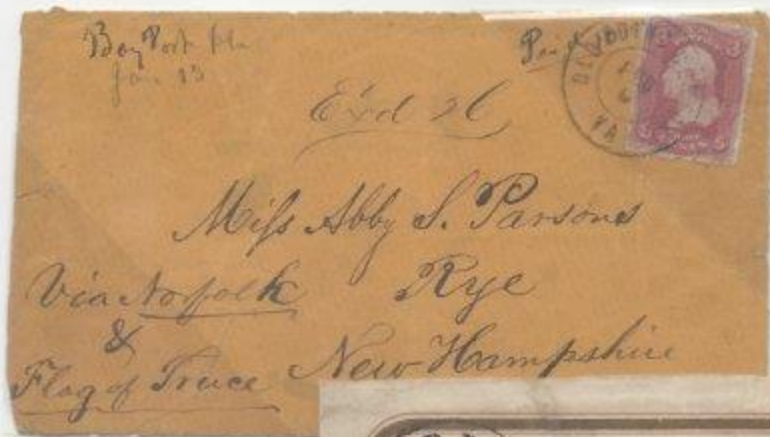 Bay Port Fla
Jan 13
Paid
Ex'd H
Miss Abby S. Parsons
Rye
New Hampshire
Via Norfolk
&
Flag of Truce
VA
3 3